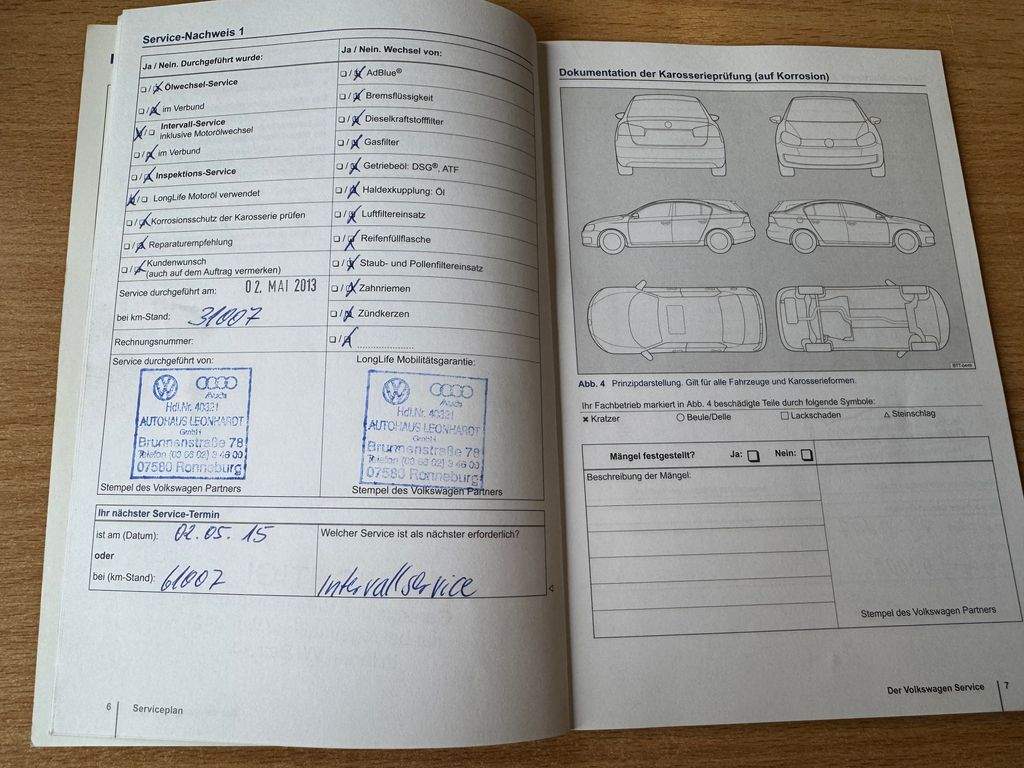 Service-Nachweis 1
Ja / Nein. Durchgeführt wurde:
Ölwechsel-Service
im Verbund
Intervall-Service
inklusive Motorölwechsel
im Verbund
Inspektions-Service
LongLife Motoröl verwendet
Korrosionsschutz der Karosserie prüfen
Reparaturempfehlung
Kundenwunsch
(auch auf dem Auftrag vermerken)
Service durchgeführt am: 02. MAI 2013
bei km-Stand: 31007
Rechnungsnummer:
Ja / Nein. Wechsel von:
AdBlue®
Bremsflüssigkeit
Dieselkraftstofffilter
Gasfilter
Getriebeöl: DSG®, ATF
Haldexkupplung: Öl
Luftfiltereinsatz
Reifenfüllflasche
Staub- und Pollenfiltereinsatz
Zahnriemen
Zündkerzen
Service durchgeführt von:
Audi
Hdl.Nr. 40321
AUTOHAUS LEONHARDT
GmbH
Brunnenstraße 78
Telefon (03 66 02) 3 46 00
07580 Ronneburg
Stempel des Volkswagen Partners
LongLife Mobilitätsgarantie:
Audi
Hdl.Nr. 40321
AUTOHAUS LEONHARDT
GmbH
Brunnenstraße 78
Telefon (03 66 02) 3 46 00
07580 Ronneburg
Stempel des Volkswagen Partners
Ihr nächster Service-Termin
ist am (Datum): 02.05.15
oder
bei (km-Stand): 61007
Welcher Service ist als nächster erforderlich?
Intervallservice
6 Serviceplan
Dokumentation der Karosserieprüfung (auf Korrosion)
Abb. 4 Prinzipdarstellung. Gilt für alle Fahrzeuge und Karosserieformen.
Ihr Fachbetrieb markiert in Abb. 4 beschädigte Teile durch folgende Symbole:
Kratzer Beule/Delle Lackschaden Steinschlag
Mängel festgestellt? Ja: Nein:
Beschreibung der Mängel:
Stempel des Volkswagen Partners
Der Volkswagen Service 7